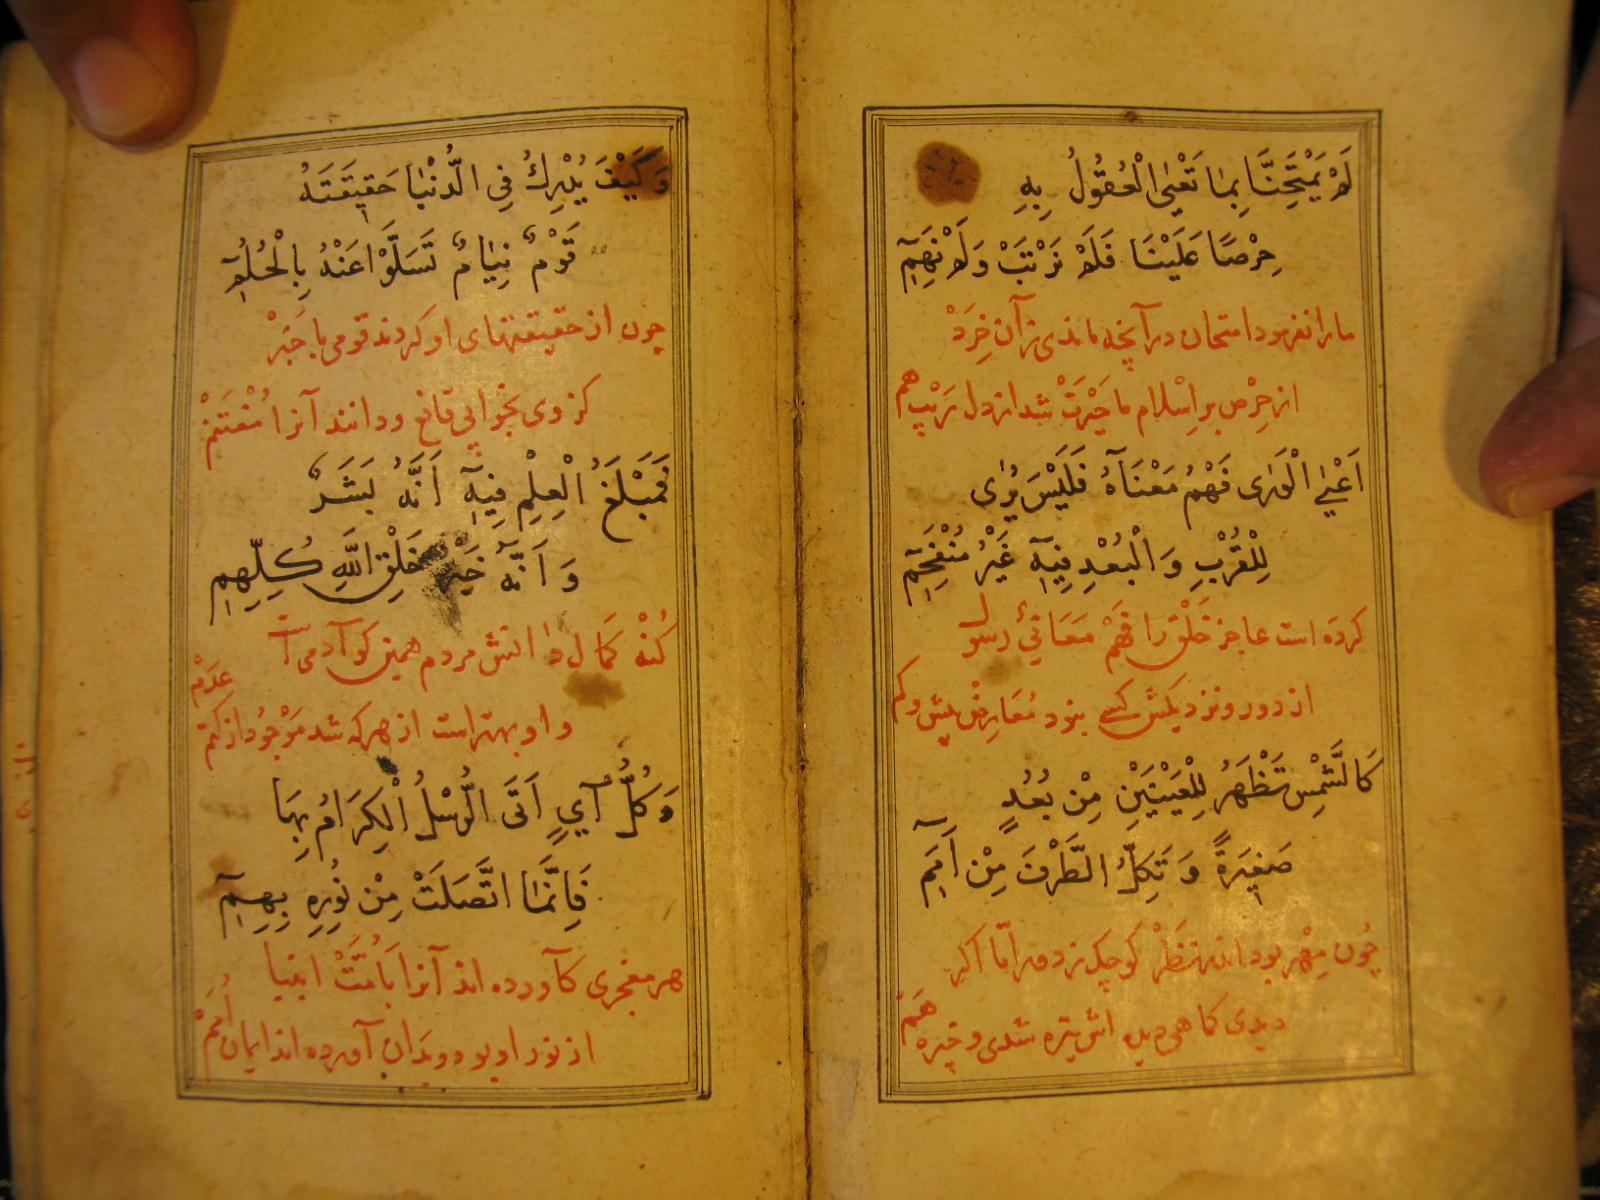 لَمْ يَمْتَحِنَّا بِمَا تَعْيَى الْعُقُولُ بِهِ
حِرْصًا عَلَيْنَا فَلَمْ نَرْتَبْ وَلَمْ نَهِمِ
مارا نفرمود امتحان در آنچه ماندی زآن خِرَدْ
از حِرْص بر اِسْلام ما حَیْرَتْ شد از دل رَیْب هم
اَعْيَى الْوَرَى فَهْمُ مَعْنَاهُ فَلَيْسَ يُرَى
لِلْقُرْبِ وَالْبُعْدِ فِيهِ غَيْرُ مُنْفَحِمِ
کرده است عاجز خَلْق را فَهْم مَعَانیِ رسول
از دور و نزدیکش کسی نبود مُعَارِض بیش و کم
كَالشَّمْسِ تَظْهَرُ لِلْعَيْنَيْنِ مِنْ بُعُدٍ
صَغِيرَةً وَتَكِلُّ الطَّرْفَ مِنْ اَمَمِ
چُون مِهْر بود اندر نَظَرْ کوچک زد امّا اکر
دیدی کا هی دیده اش تیره شدی و خیره هَمْ
وَكَيْفَ يُدْرِكُ فِي الدُّنْيَا حَقِيقَتَهُ
قَوْمٌ نِيَامٌ تَسَلَّوْا عَنْهُ بِالْحُلُمِ
چون از حقیقتهای او کردند قومی با خَبَرْ
کز وی بخوابی قانع و دانند آنرا مُغْتَنَمْ
فَمَبْلَغُ الْعِلْمِ فِيهِ اَنَّهُ بَشَرٌ
وَاَنَّهُ خَيْرُ خَلْقِ اللَّهِ كُلِّهِمِ
کُنْه کَمال دانش مردم همین کو آدمی است
و او بهتر است از هر که شد مَوْجُود از کتم عَدَمْ
وَكُلُّ آيٍ اَتَى الرُّسْلُ الْكِرَامُ بِهَا
فَاِنَّمَا اتَّصَلَتْ مِنْ نُورِهِ بِهِمِ
هر معجزی کآورده اند آنرا بَاُمَّتْ انبیا
از نور او بود و بدان آورده اند ایمان اُمَمْ